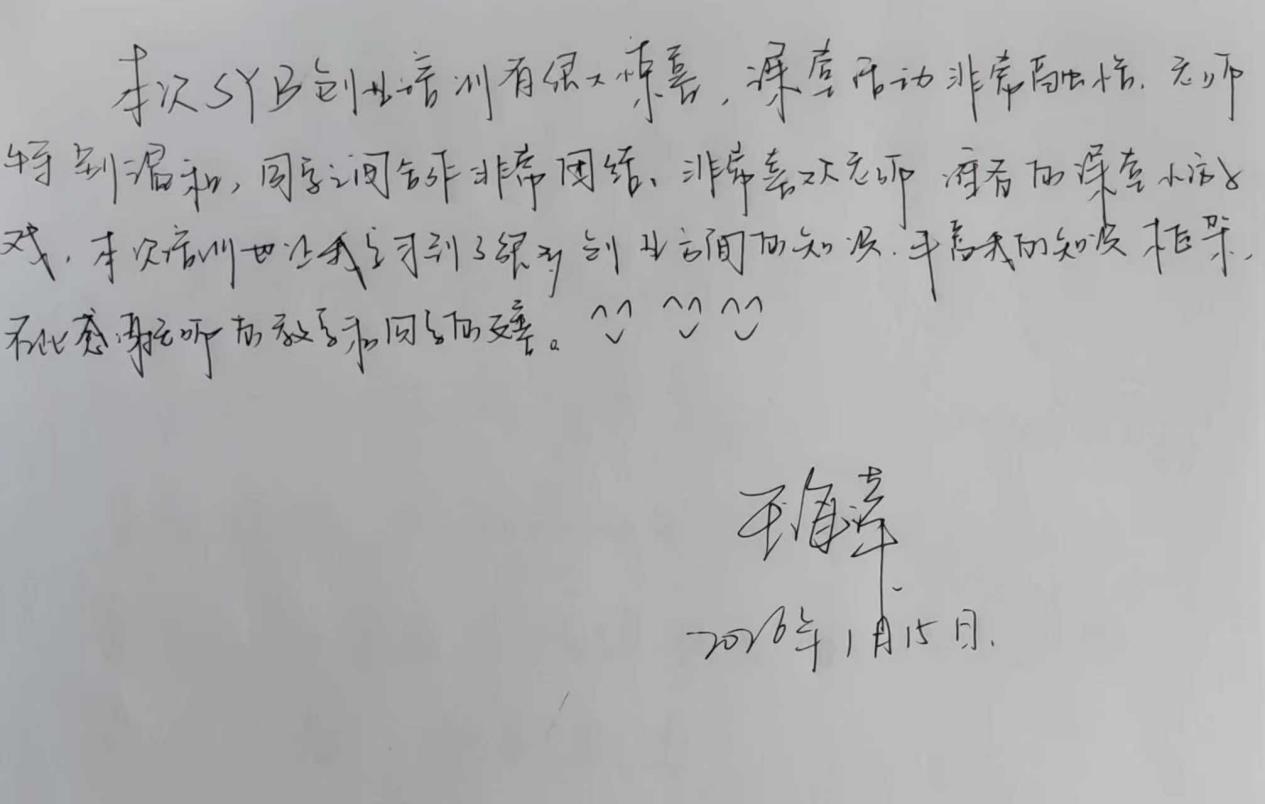 本次SYB创业培训有很大惊喜，课堂活动非常融洽.老师
特别温和，同学之间合作非常团结、非常喜欢老师准备的课堂小游
戏.本次培训也让我学习到了很多创业方面的知识.丰富我的知识框架，
在此感谢老师的教学和同学的友善。^^ ^^ ^^
2026年1月15日.